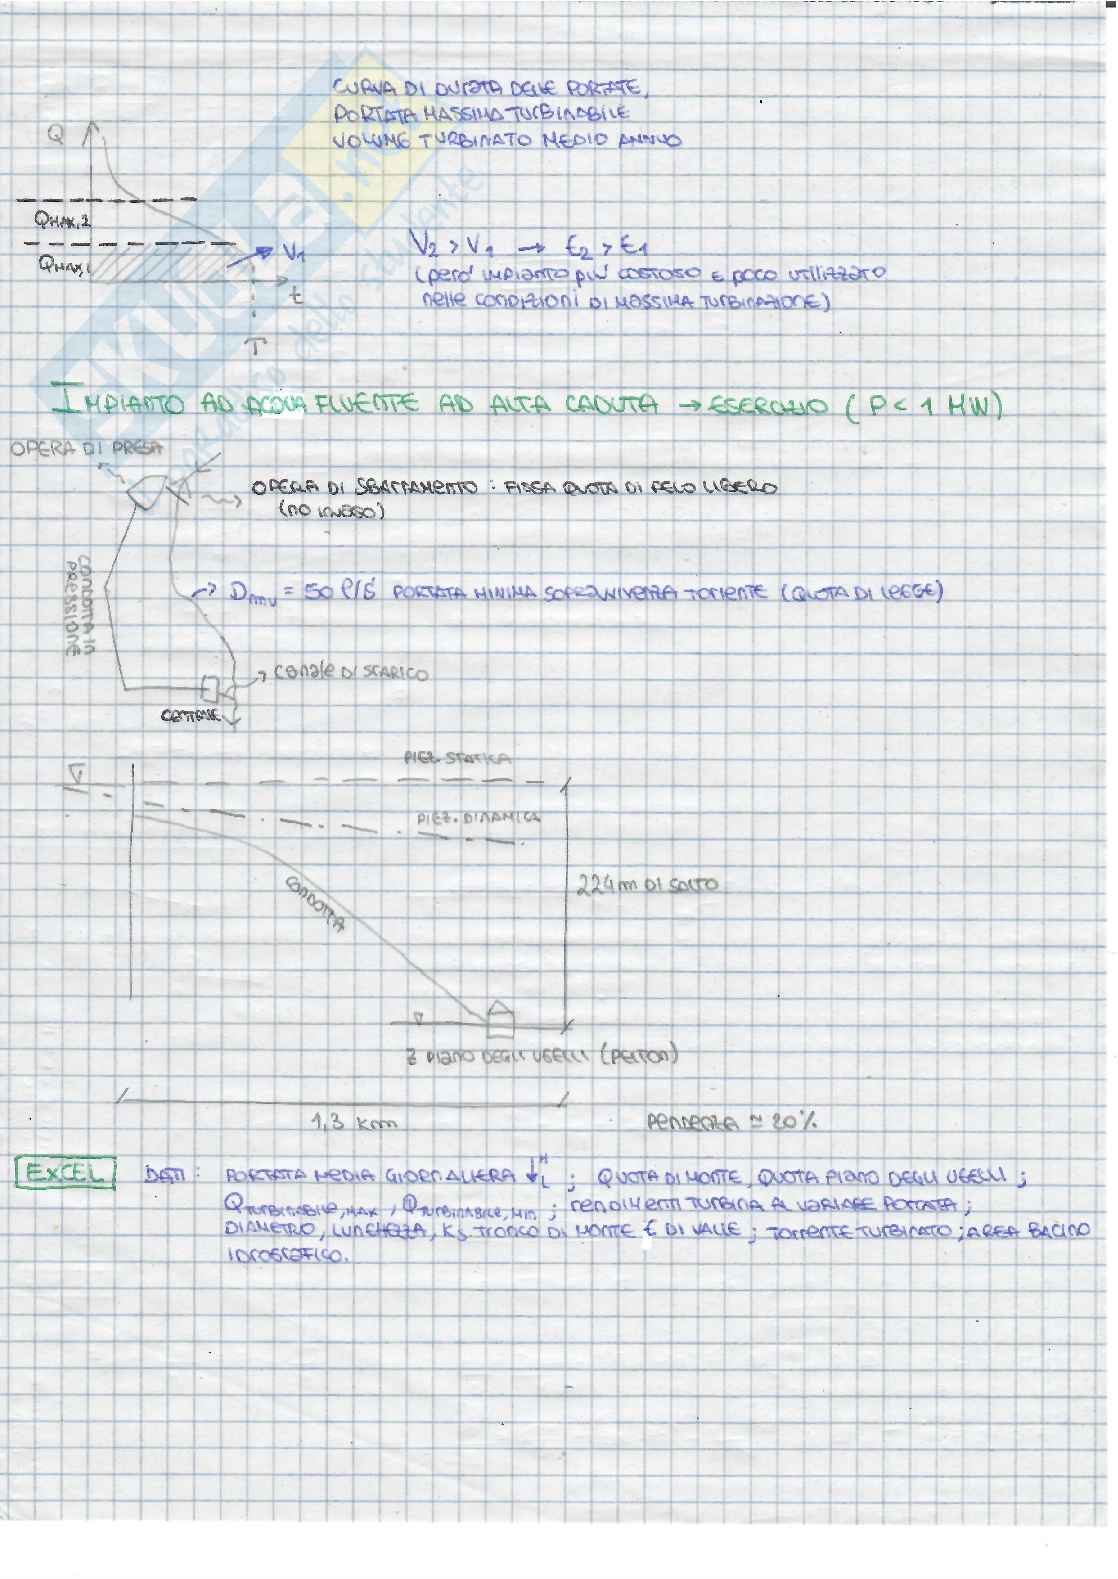 CURVA DI DURATA DELLE PORTATE,
PORTATA MASSIMA TURBINABILE
VOLUME TURBINATO MEDIO ANNUO
Q
QMAX,2
QMAX,1
V1
t
T
V2 > V1 → E2 > E1
(però impianto più costoso e poco utilizzato
nelle condizioni di massima turbinazione)
IMPIANTO AD ACQUA FLUENTE AD ALTA CADUTA → ESERCIZIO (P < 1 MW)
OPERA DI PRESA
OPERA DI SBARRAMENTO: FISSA QUOTA DI PELO LIBERO
(no invaso)
CONDOTTA IN
PRESSIONE
Dmv = 50 l/s PORTATA MINIMA SOPRAVVIVENZA TORRENTE (QUOTA DI LEGGE)
Canale DI SCARICO
CENTRALE
PIEZ. STATICA
PIEZ. DINAMICA
CONDOTTA
224 m DI SALTO
Z PIANO DEGLI UGELLI (PELTON)
1,3 km
PENDENZA ≃ 20%
EXCEL
DATI: PORTATA MEDIA GIORNALIERA ↓ H L ; QUOTA DI MONTE, QUOTA PIANO DEGLI UGELLI;
QTURBINABILE,MAX, QTURBINABILE,MIN; rendimenti TURBINA AL VARIARE PORTATA;
DIAMETRO, LUNGHEZZA, Ks TRONCO DI MONTE E DI VALLE; TORRENTE TURBINATO; AREA BACINO
IDROGRAFICO.
SKUOLA.net